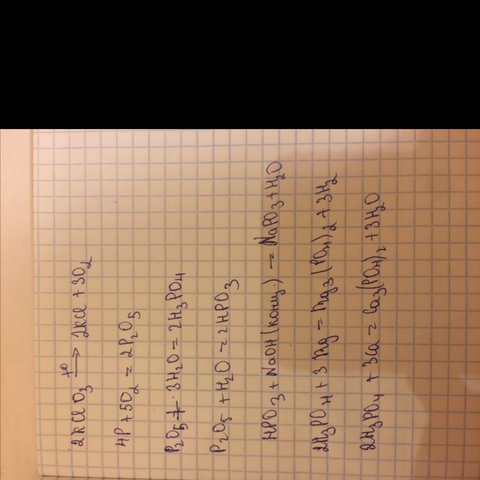 2KClO₃ —t°→ 2KCl + 3O₂
4P + 5O₂ = 2P₂O₅
P₂O₅ + 3H₂O = 2H₃PO₄
P₂O₅ + H₂O = 2HPO₃
HPO₃ + NaOH (конц.) → NaPO₃ + H₂O
2H₃PO₄ + 3Mg = Mg₃(PO₄)₂ + 3H₂
2H₃PO₄ + 3Ca = Ca₃(PO₄)₂ + 3H₂O